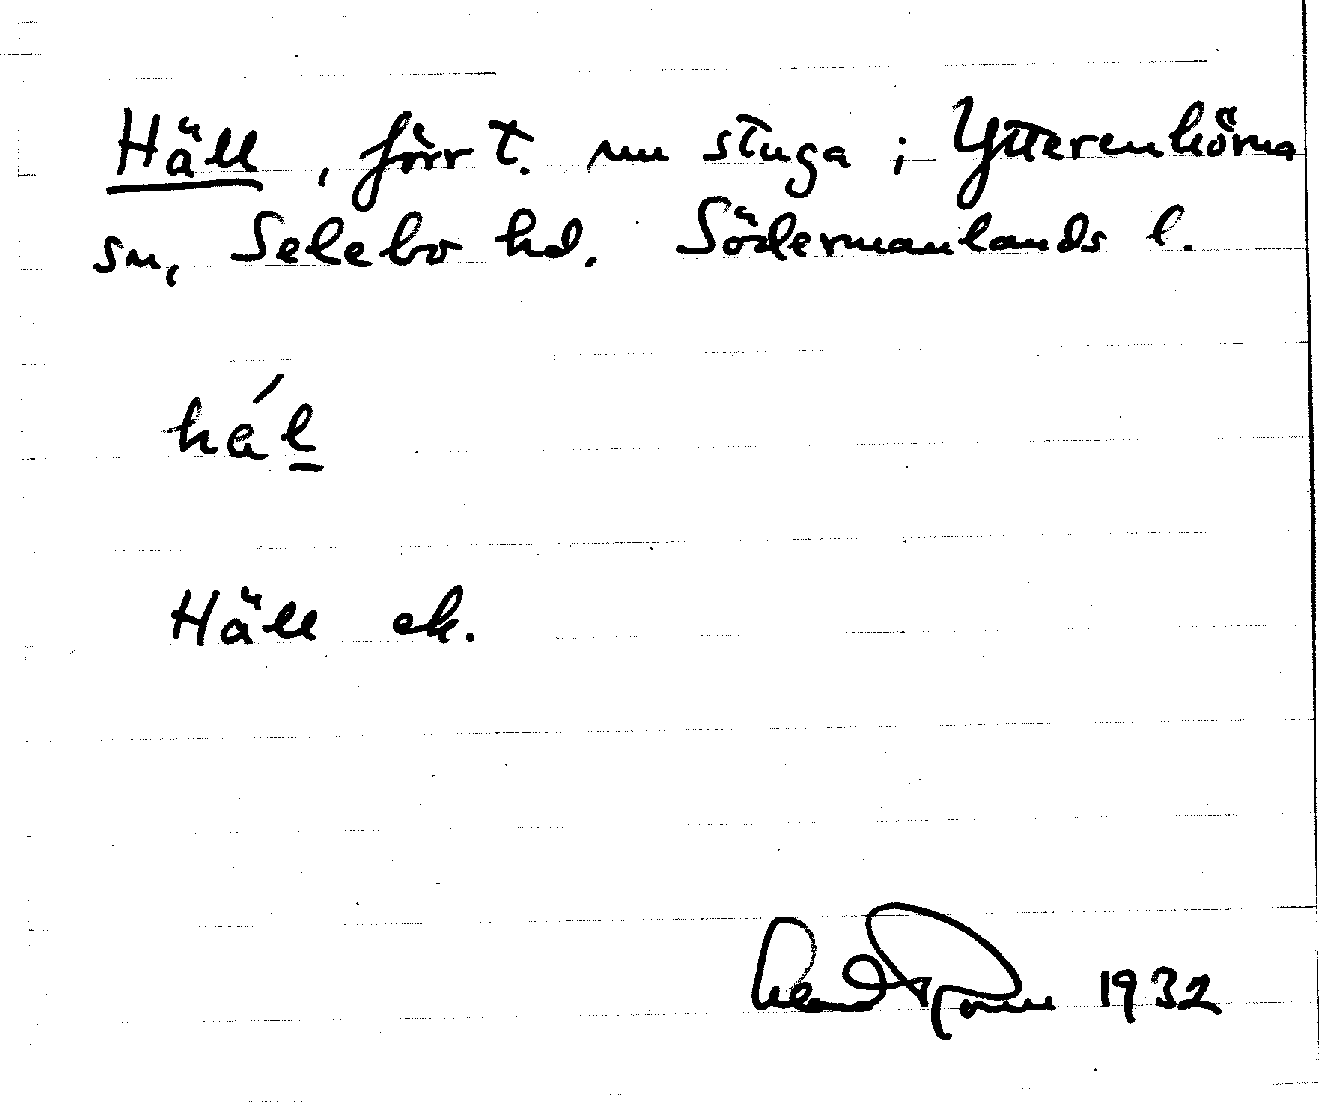 Häll, förr t. nu stuga i Ytterenhörna
sn, Selebo hd. Södermanlands l.
hä́l
Häll ek.
1932